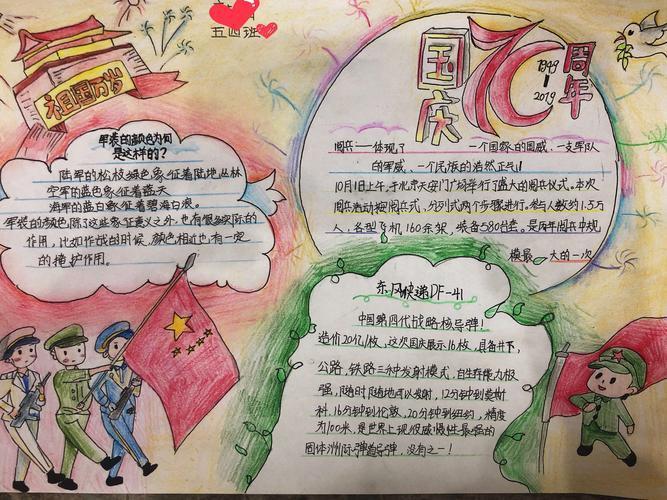 五四班
祖国万岁
军装的颜色为何
是这样的？
陆军的松枝绿色象征着陆地丛林
空军的蓝色象征着蓝天
海军的蓝白象征着碧海白浪。
军装的颜色除了这些象征意义之外，也有很多实际的
作用，比如作战的时候，颜色相近也有一定
的掩护作用。
国庆70周年
1949
2019
阅兵——体现了一个国家的国威、一支军队
的军威、一个民族的浩然正气！
10月1日上午，于北京天安门广场举行了盛大的阅兵仪式。本次
阅兵活动按阅兵式、分列式两个步骤进行，参与人数约1.5万
人，各型飞机160余架，装备580台套，是历年阅兵中规
模最大的一次
东风快递DF-41
中国第四代战略核导弹！
造价20亿/枚，这次国庆展示16枚，具备井下，
公路，铁路三种发射模式，自生存能力极
强，随时随地可以发射，12分钟到莫斯
科，16分钟到伦敦，20分钟到纽约，精度
为100米，是世界上现役威慑性最强的
固体洲际弹道导弹，没有之一！